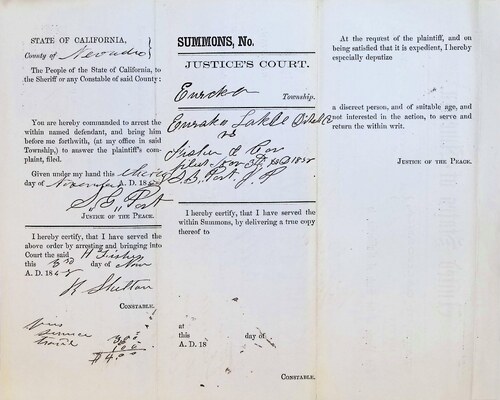 STATE OF CALIFORNIA,
County of Nevada
The People of the State of California, to
the Sheriff or any Constable of said County:
You are hereby commanded to arrest the
within named defendant, and bring him
before me forthwith, (at my office in said
Township,) to answer the plaintiff's com-
plaint, filed.
Given under my hand this
day of November A. D. 18
S. E. Post
JUSTICE OF THE PEACE.
I hereby certify, that I have served the
above order by arresting and bringing into
Court the said H Fisher
this 3rd day of Nov
A. D. 18
Shelton
CONSTABLE.
$4.00
SUMMONS, No.
JUSTICE'S COURT.
Eureka
Township.
Eureka Lake Ditch C
vs
Fisher & Co
Nov 3d AD 18
Post J. P.
I hereby certify, that I have served the
within Summons, by delivering a true copy
thereof to
at
this day of
A. D. 18
CONSTABLE.
At the request of the plaintiff, and on
being satisfied that it is expedient, I hereby
especially deputize
a discreet person, and of suitable age, and
not interested in the action, to serve and
return the within writ.
JUSTICE OF THE PEACE.